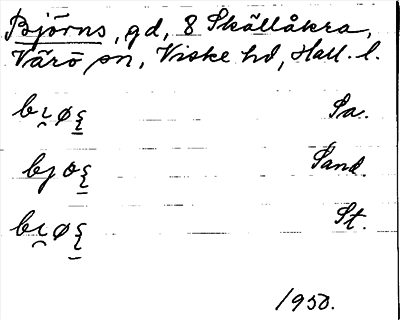 Björns, gd, 8 Skällåkra,
Värö sn, Viske hd, Hall. l.
Sa.
Sand.
St.
1950.